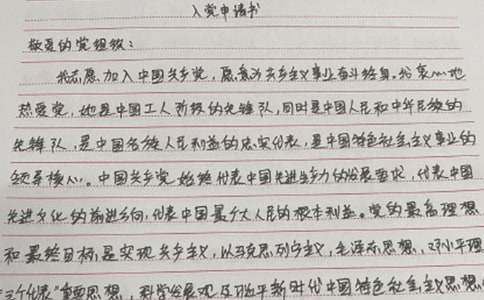 入党申请书
敬爱的党组织：
我志愿加入中国共产党，愿意为共产主义事业奋斗终身。我衷心地
热爱党，她是中国工人阶级的先锋队，同时是中国人民和中华民族的
先锋队，是中国各族人民利益的忠实代表，是中国特色社会主义事业的
领导核心。中国共产党始终代表中国先进生产力的发展要求，代表中国
先进文化的前进方向，代表中国最广大人民的根本利益。党的最高理想
和最终目标是实现共产主义，以马克思列宁主义，毛泽东思想，邓小平理
三个代表"重要思想，科学发展观及习近平新时代中国特色社会主义思想